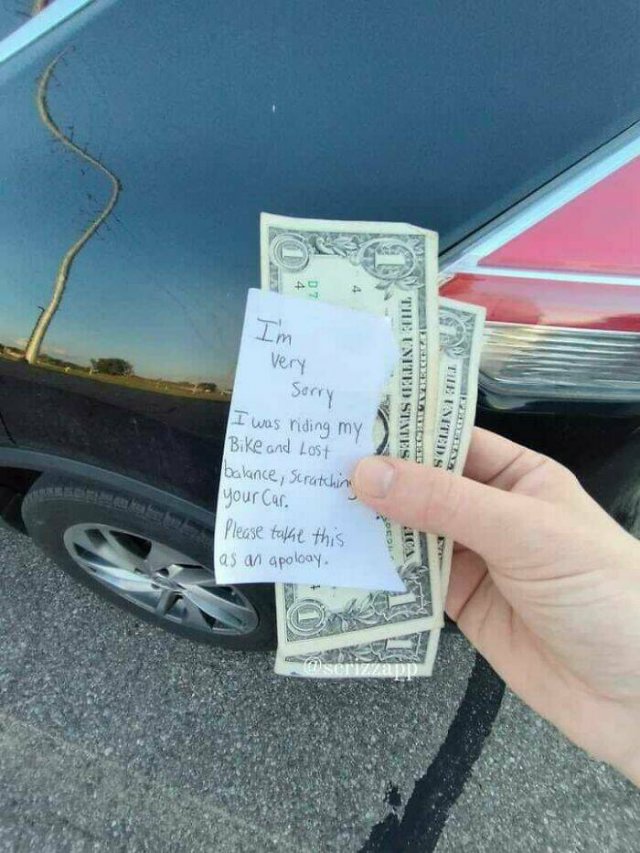 I'm
very
Sorry
I was riding my
Bike and Lost
balance, Scratching
your Car.
Please take this
as an apoloay.
THE UNITED STATES
1
1
1
@scrizzapp